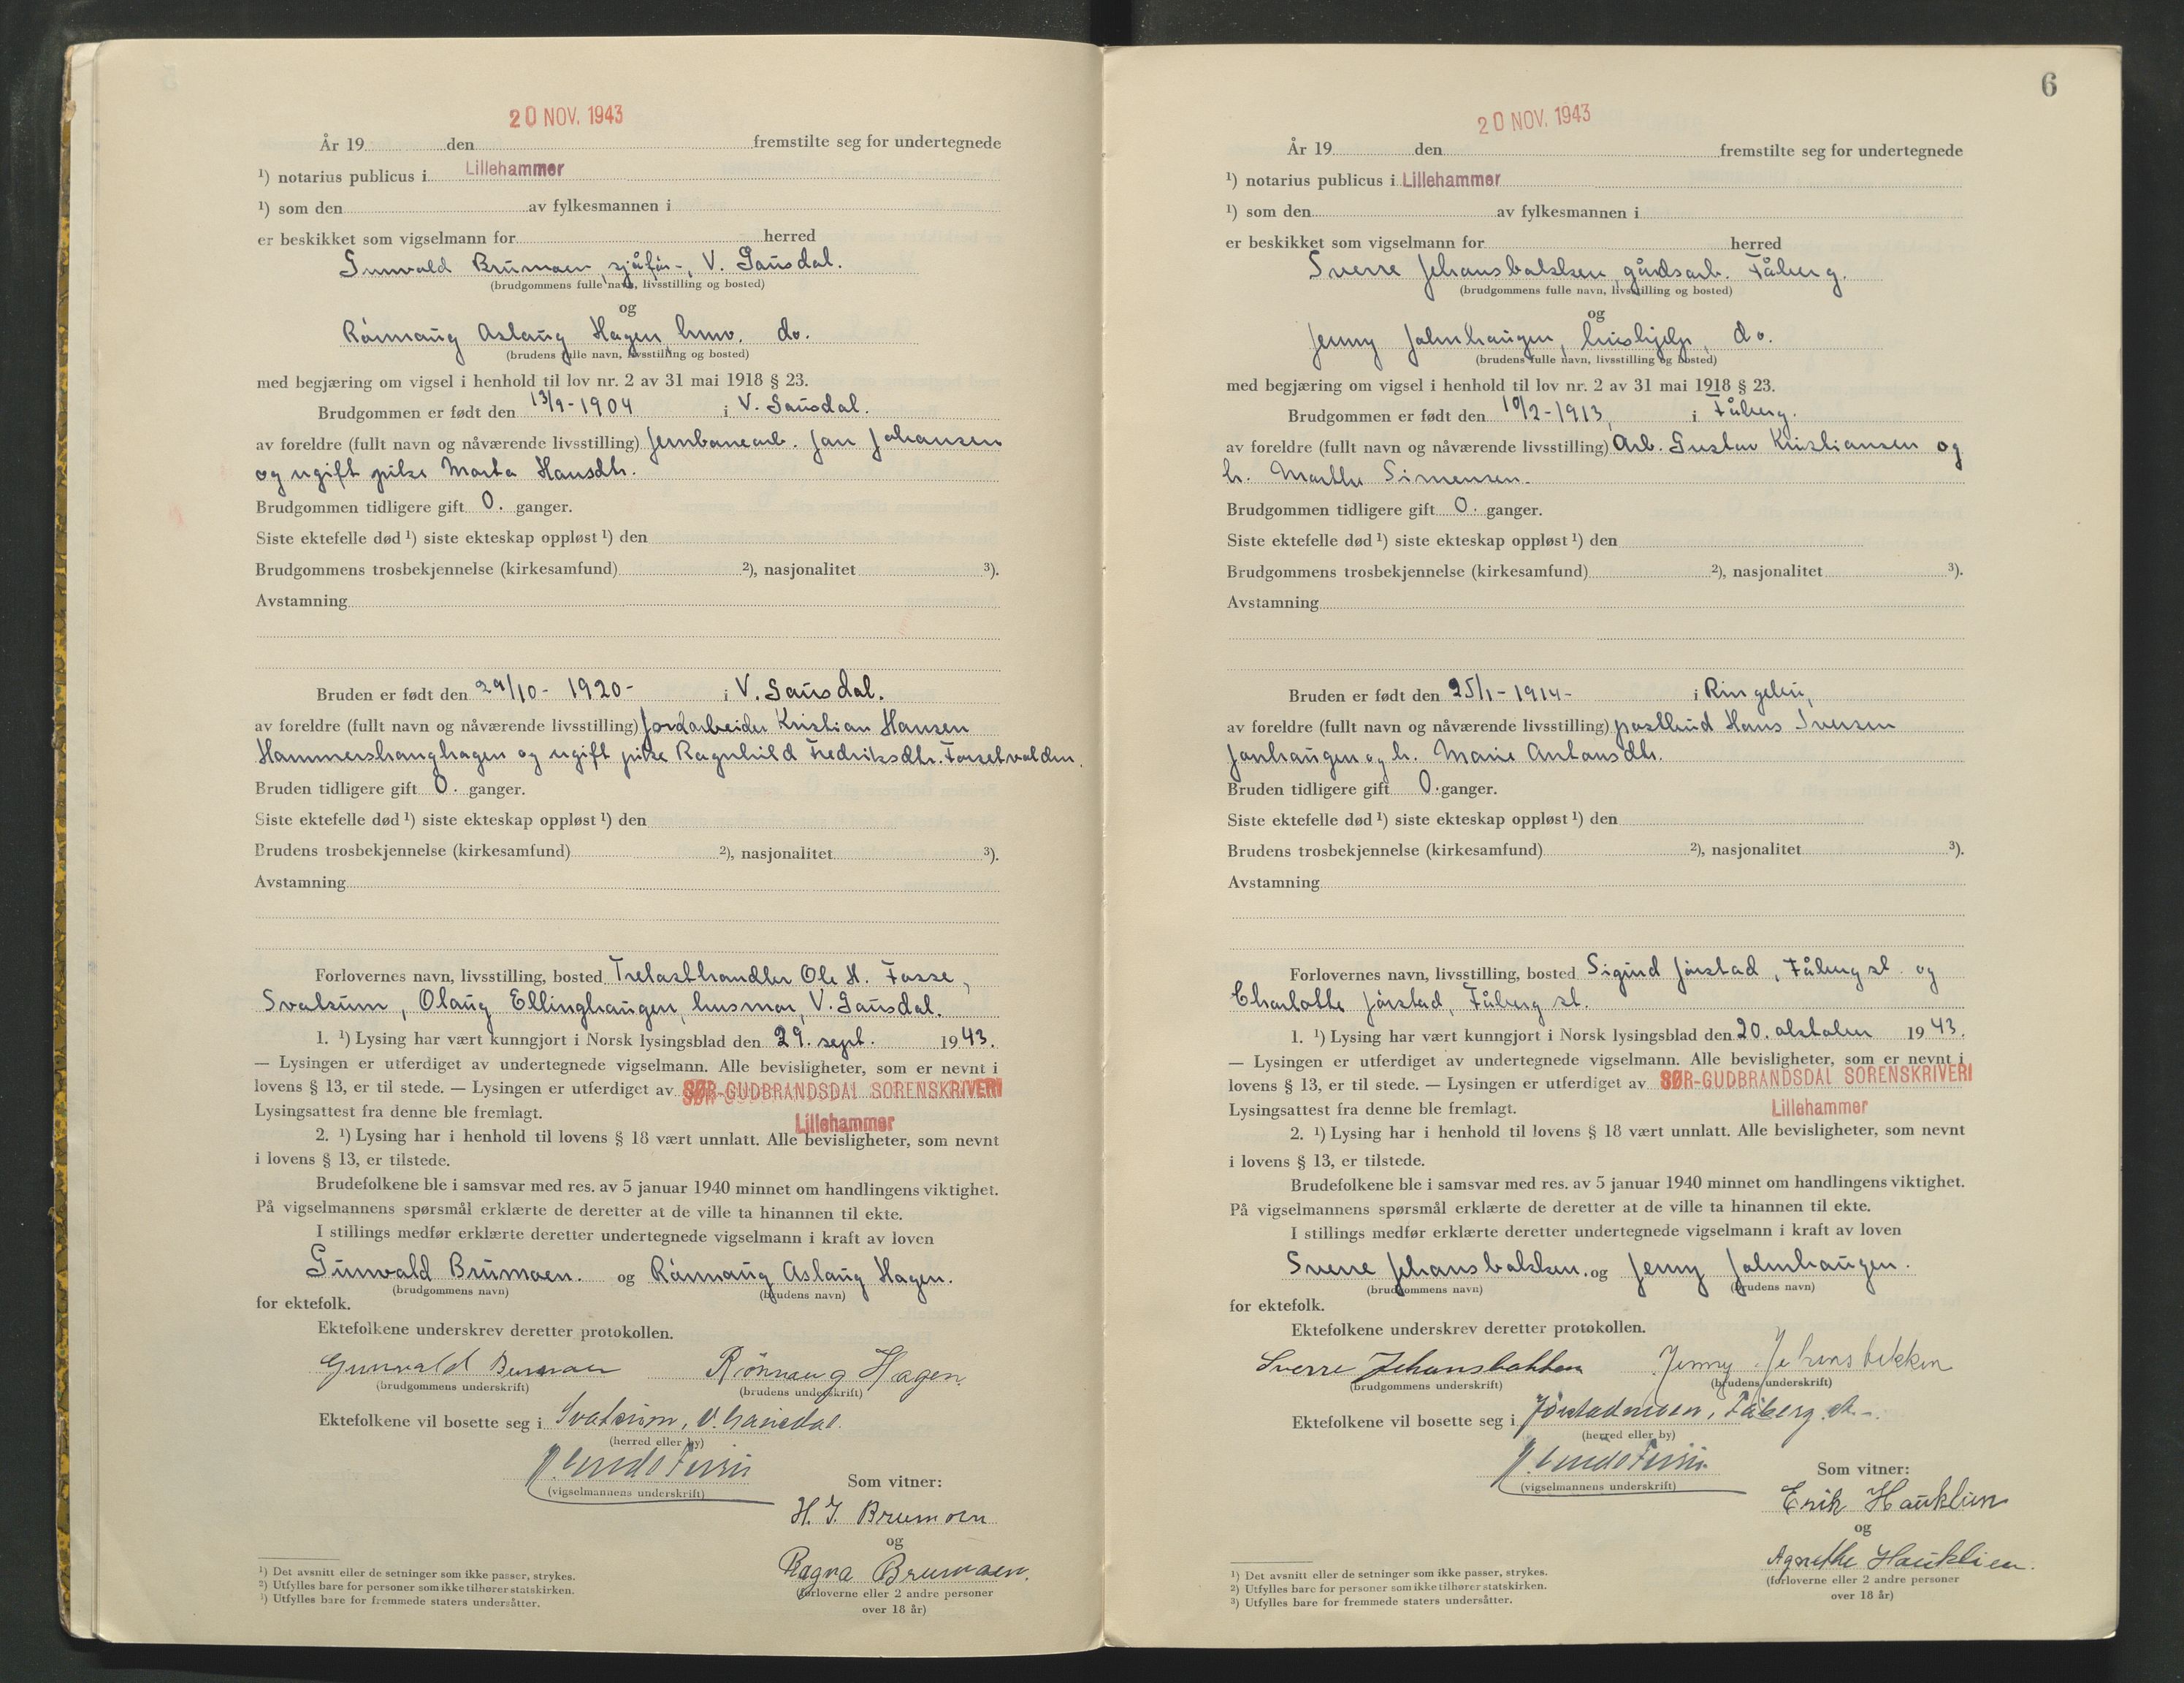 20 NOV. 1943
År 19 den fremstilte seg for undertegnede
¹) notarius publicus i Lillehammer
¹) som den av fylkesmannen i
er beskikket som vigselmann for herred
Gunvald Brumoen, sjåfør, V. Gausdal.
(brudgommens fulle navn, livsstilling og bosted)
og
Rønnaug Aslaug Hagen, husv. do.
(brudens fulle navn, livsstilling og bosted)
med begjæring om vigsel i henhold til lov nr. 2 av 31 mai 1918 § 23.
Brudgommen er født den 13/9-1904 i V. Gausdal.
av foreldre (fullt navn og nåværende livsstilling) Jernbanearb. Jan Johansen
og ugift pike Marta Hansdtr.
Brudgommen tidligere gift 0. ganger.
Siste ektefelle død ¹) siste ekteskap oppløst ¹) den
Brudgommens trosbekjennelse (kirkesamfund) ²), nasjonalitet ³).
Avstamning
Bruden er født den 29/10- 1920- i V. Gausdal.
av foreldre (fullt navn og nåværende livsstilling) Jordarbeider Kristian Hansen
Hammershaughagen og ugift pike Ragnhild Fredriksdtr. Forsetvolden.
Bruden tidligere gift 0. ganger.
Siste ektefelle død ¹) siste ekteskap oppløst ¹) den
Brudens trosbekjennelse (kirkesamfund) ²), nasjonalitet ³).
Avstamning
Forlovernes navn, livsstilling, bosted Trelasthandler Ole H. Fosse,
Svatsum, Olaug Ellinghaugen, husmor, V. Gausdal.
1. ¹) Lysing har vært kunngjort i Norsk lysingsblad den 29. sept. 1943.
— Lysingen er utferdiget av undertegnede vigselmann. Alle bevisligheter, som er nevnt i
lovens § 13, er til stede. — Lysingen er utferdiget av SØR-GUDBRANDSDAL SORENSKRIVERI
Lysingsattest fra denne ble fremlagt.
Lillehammer
2. ¹) Lysing har i henhold til lovens § 18 vært unnlatt. Alle bevisligheter, som nevnt
i lovens § 13, er tilstede.
Brudefolkene ble i samsvar med res. av 5 januar 1940 minnet om handlingens viktighet.
På vigselmannens spørsmål erklærte de deretter at de ville ta hinannen til ekte.
I stillings medfør erklærte deretter undertegnede vigselmann i kraft av loven
Gunvald Brumoen. og Rønnaug Aslaug Hagen.
(brudgommens navn) (brudens navn)
for ektefolk.
Ektefolkene underskrev deretter protokollen.
Gunvald Brumoen Rönnaug Hagen.
(brudgommens underskrift) (brudens underskrift)
Ektefolkene vil bosette seg i Svatsum, V. Gausdal.
(herred eller by)
(vigselmannens underskrift)
Som vitner:
H. J. Brumoen
og
Ragna Brumoen.
(forloverne eller 2 andre personer
over 18 år)
¹) Det avsnitt eller de setninger som ikke passer, strykes.
²) Utfylles bare for personer som ikke tilhører statskirken.
³) Utfylles bare for fremmede staters undersåtter.
6
20 NOV. 1943
År 19 den fremstilte seg for undertegnede
¹) notarius publicus i Lillehammer
¹) som den av fylkesmannen i
er beskikket som vigselmann for herred
Sverre Jehansbakken, gårdsarb. Fåberg.
(brudgommens fulle navn, livsstilling og bosted)
og
Jenny Jalmhaugen, hushjelp, do.
(brudens fulle navn, livsstilling og bosted)
med begjæring om vigsel i henhold til lov nr. 2 av 31 mai 1918 § 23.
Brudgommen er født den 10/2-1913, i Fåberg.
av foreldre (fullt navn og nåværende livsstilling) Arb. Gustav Kristiansen og
h. Marthe Simensen.
Brudgommen tidligere gift 0. ganger.
Siste ektefelle død ¹) siste ekteskap oppløst ¹) den
Brudgommens trosbekjennelse (kirkesamfund) ²), nasjonalitet ³).
Avstamning
Bruden er født den 25/1-1914- i Ringebu,
av foreldre (fullt navn og nåværende livsstilling) postbud Hans Iversen
Janhaugen og h. Marie Antonsdtr.
Bruden tidligere gift 0. ganger.
Siste ektefelle død ¹) siste ekteskap oppløst ¹) den
Brudens trosbekjennelse (kirkesamfund) ²), nasjonalitet ³).
Avstamning
Forlovernes navn, livsstilling, bosted Sigurd Jørstad, Fåberg st. og
Charlotte Jørstad, Fåberg st.
1. ¹) Lysing har vært kunngjort i Norsk lysingsblad den 20. oktober 1943.
— Lysingen er utferdiget av undertegnede vigselmann. Alle bevisligheter, som er nevnt i
lovens § 13, er til stede. — Lysingen er utferdiget av SØR-GUDBRANDSDAL SORENSKRIVERI
Lysingsattest fra denne ble fremlagt. Lillehammer
2. ¹) Lysing har i henhold til lovens § 18 vært unnlatt. Alle bevisligheter, som nevnt
i lovens § 13, er tilstede.
Brudefolkene ble i samsvar med res. av 5 januar 1940 minnet om handlingens viktighet.
På vigselmannens spørsmål erklærte de deretter at de ville ta hinannen til ekte.
I stillings medfør erklærte deretter undertegnede vigselmann i kraft av loven
Sverre Jehansbakken. og Jenny Jalmhaugen.
(brudgommens navn) (brudens navn)
for ektefolk.
Ektefolkene underskrev deretter protokollen.
Sverre Jehansbakken Jenny Jehansbakken
(brudgommens underskrift) (brudens underskrift)
Ektefolkene vil bosette seg i Jørstadmoen, Fåberg st.
(herred eller by)
(vigselmannens underskrift)
Som vitner:
Erik Hauklien
og
Agnethe Hauklien.
(forloverne eller 2 andre personer
over 18 år)
¹) Det avsnitt eller de setninger som ikke passer, strykes.
²) Utfylles bare for personer som ikke tilhører statskirken.
³) Utfylles bare for fremmede staters undersåtter.